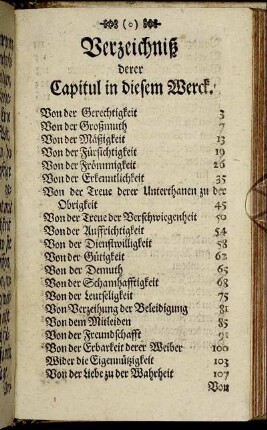 (o)
Verzeichniß
derer
Capitul in diesem Werck.
Von der Gerechtigkeit 3
Von der Großmuth 7
Von der Mäßigkeit 13
Von der Fürsichtigkeit 19
Von der Frömmigkeit 26
Von der Erkenntlichkeit 35
Von der Treue derer Unterthanen zu der
Obrigkeit 45
Von der Treue der Verschwiegenheit 50
Von der Auffrichtigkeit 54
Von der Dienstwilligkeit 58
Von der Gütigkeit 62
Von der Demuth 65
Von der Schamhafftigkeit 68
Von der Leutseligkeit 75
Von Verzeihung der Beleidigung 81
Von dem Mitleiden 85
Von der Freundschafft 91
Von der Erbarkeit derer Weiber 100
Wider die Eigennützigkeit 103
Von der Liebe zu der Wahrheit 107
Von